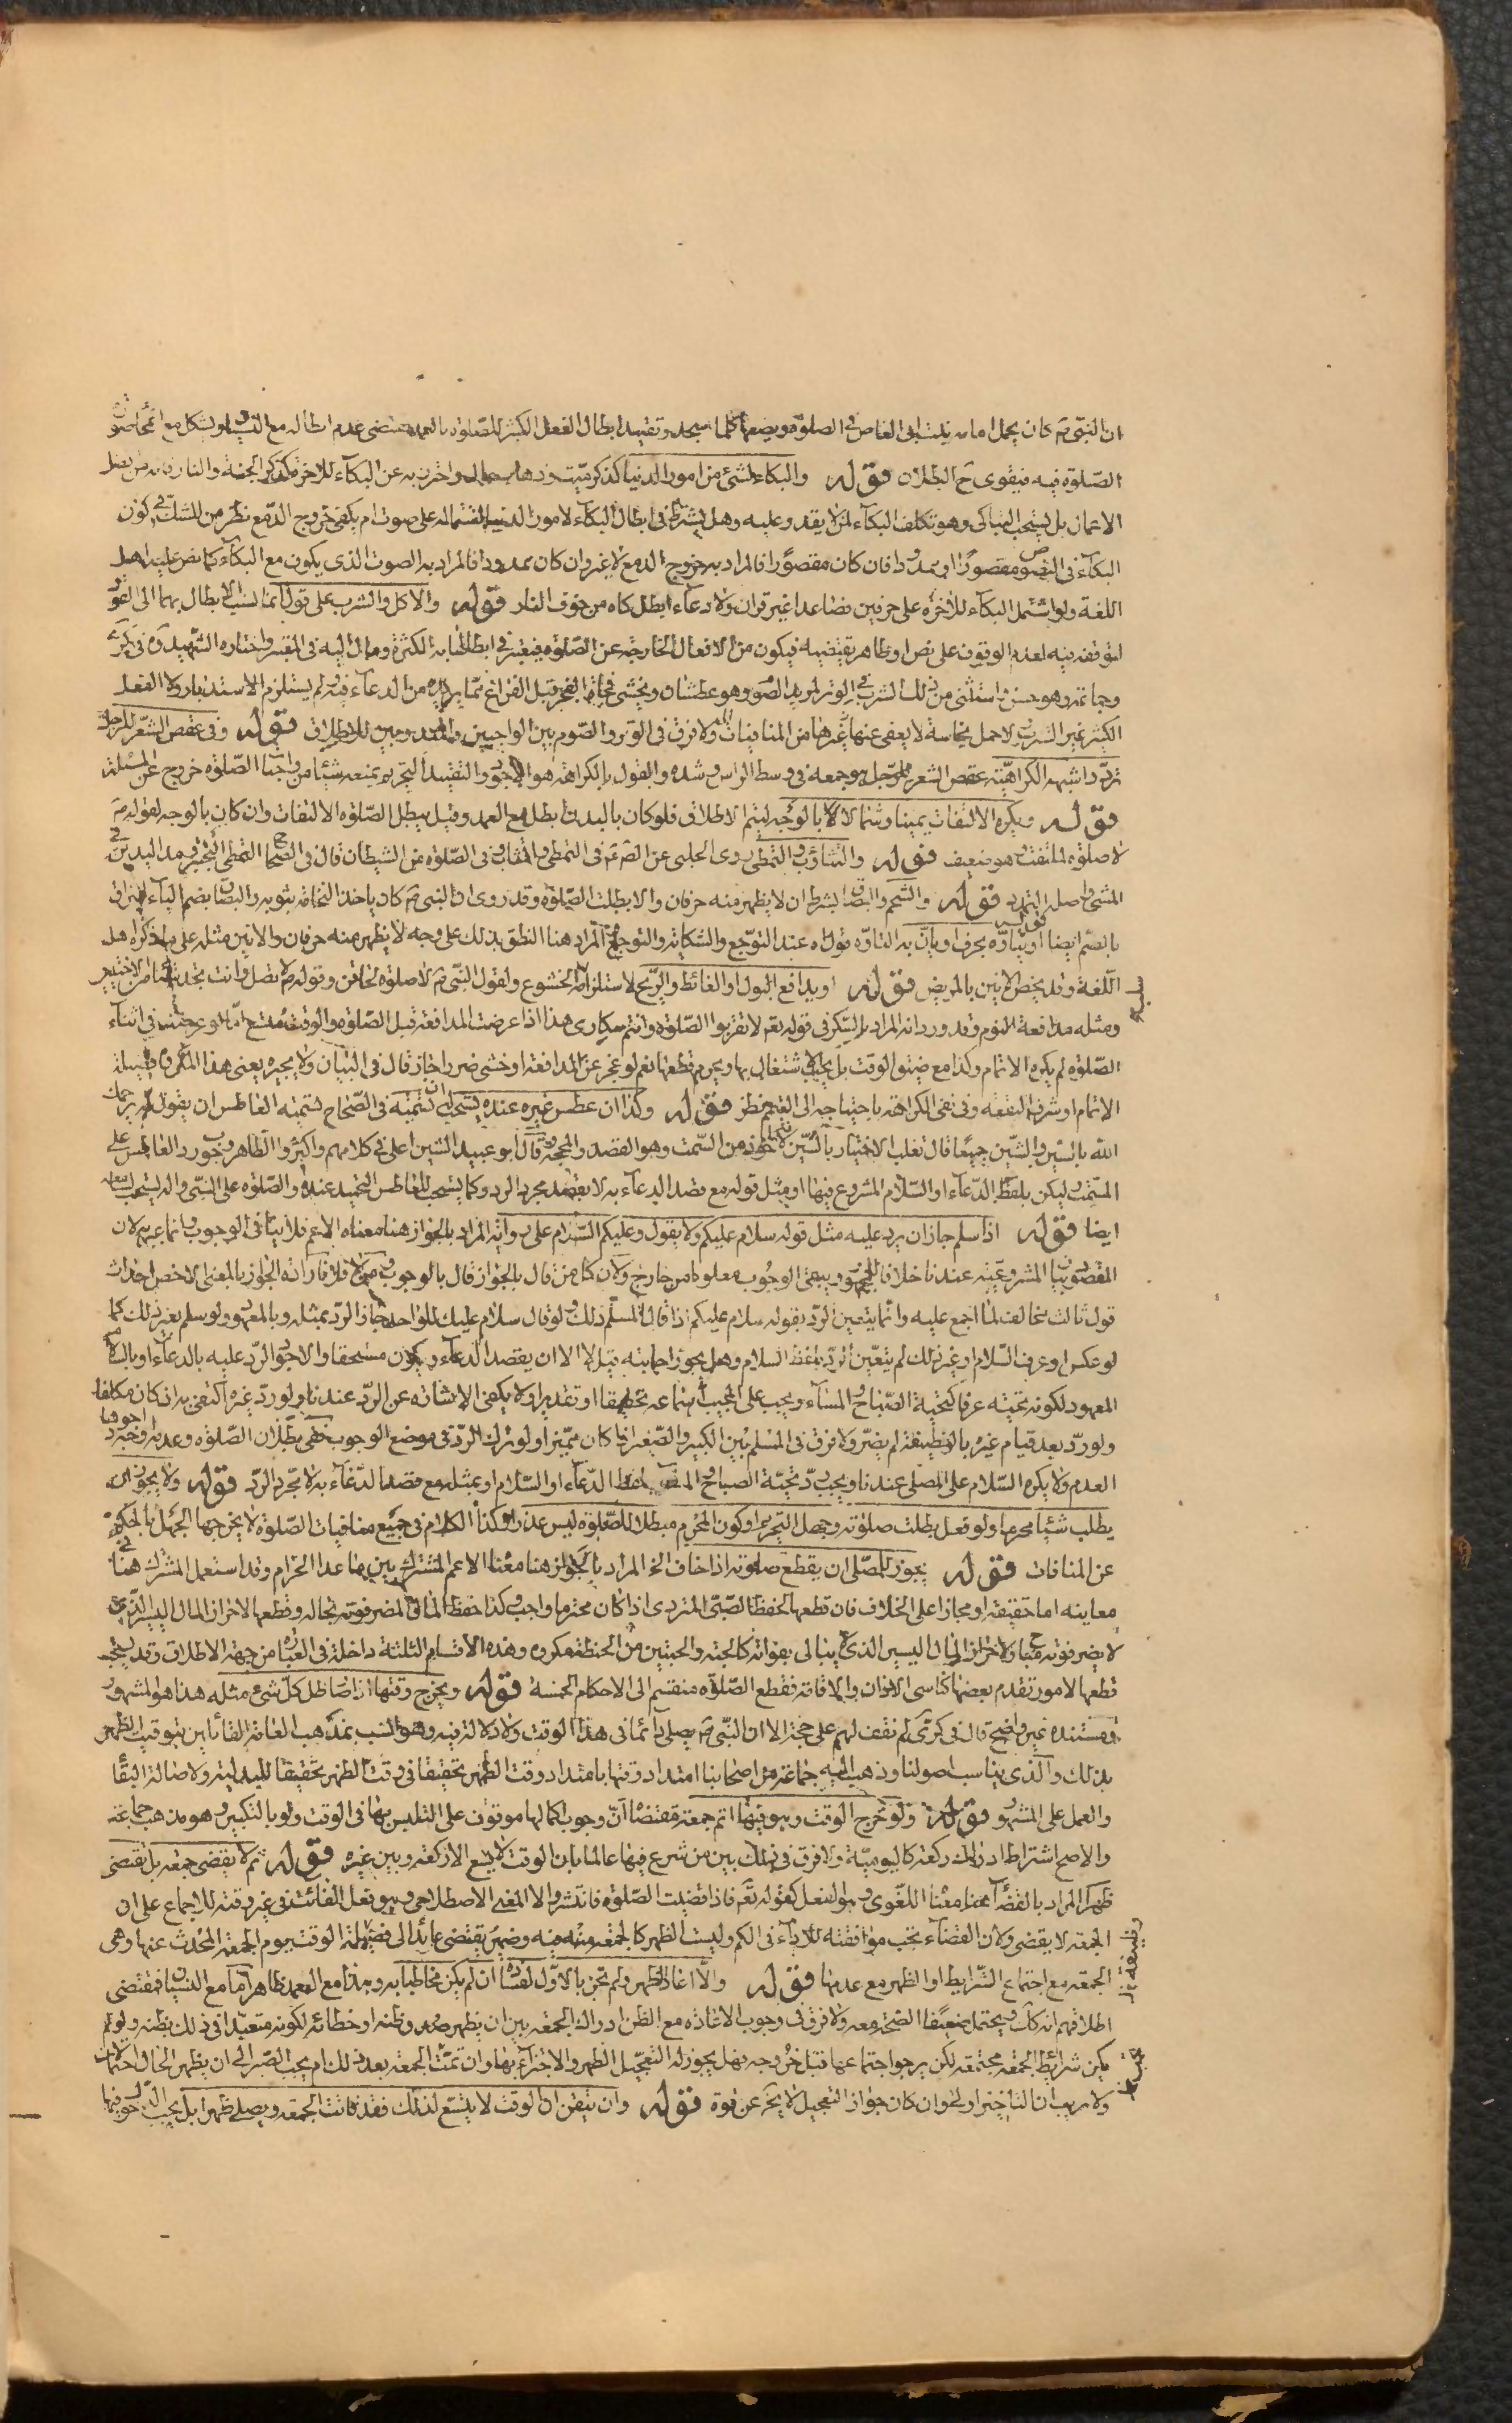 ان النبي ص كان يحمل امامه بنت ابي العاص في الصلوة ويضعها كلما سجد وتقييد ابطال الفعل الكثير للصلوة بالعمد يقتضي عدم ابطاله مع النسيان ويشكل مع انمحاء صورة
الصلوة فيه فيقوى ح البطلان قوله والبكاء لشئ من امور الدنيا كذكر ميت وذهاب مال واحترز به عن البكاء للاخرة كذكر الجنة والنار فانه من افضل
الاعمال بل يستحب التباكي وهو تكلف البكاء لمن لا يقدر عليه وهل يشترط في ابطال البكاء لامور الدنيا اشتماله على صوت ام يكفي خروج الدمع نظر من الشك في كون
البكاء في النصوص مقصورا او ممدودا فان كان مقصورا فالمراد به خروج الدمع لا غير وان كان ممدودا فالمراد به الصوت الذي يكون مع البكاء كما نص عليه اهل
اللغة ولو اشتمل البكاء للاخرة على حرفين فصاعدا غير قرآن ولا دعاء ابطل كاه من خوف النار قوله والاكل والشرب على قول انما نسب الابطال بهما الى القول
لتوقفه فيه لعدم الوقوف على نص او ظاهر يقتضيه فيكون من الافعال الخارجة عن الصلوة فيعتبر في ابطالها به الكثرة ومال اليه في المعتبر واختاره الشهيد ره في كرى
وجماعة وهو حسن واستثنى من ذلك الشرب في الوتر لمريد الصوم وهو عطشان ويخشى فجأة الفجر قبل الفراغ مما يريده من الدعاء فيه ولم يستلزم الاستدبار ولا الفعل
الكثير غير الشرب ولا حمل نجاسة لا يعفى عنها وغيرها من المنافيات ولا فرق في الوتر والصوم بين الواجبين والمندوبين للاطلاق قوله وفي عقص الشعر للرجل
تردد اشبهه الكراهية عقص الشعر للرجل هو جمعه في وسط الراس وشده والقول بالكراهة هو الاجود والتقييد التحريم بمنعه شيئا من واجبات الصلوة خروج عن المسئلة
قوله ويكره الالتفات يمينا وشمالا لا بالوجه ليتم الاطلاق فلو كان بالبدن ابطل مع العمد وقيل يبطل الصلوة الالتفات وان كان بالوجه لقوله ص
لا صلوة لملتفت وهو ضعيف قوله والتثاؤب والتمطي روى الحلبي عن الصادق ع في التمطي والتثاؤب في الصلوة من الشيطان قال في الصحاح التمطي التبختر ومد اليدين في
المشي واصله التمدد قوله والتنخم والبصاق بشرط ان لا يظهر منه حرفان والا بطلت الصلوة وقد روى ان النبي ص كان ياخذ النخامة بثوبه والبصاق بضم الباء كالبزاق
بالضم ايضا قوله او يتأوه بحرف او يان به التاوه قول اه عند التوجع والشكاية والتوجع المراد هنا النطق بذلك على وجه لا يظهر منه حرفان والانين مثله على ما ذكره اهل
اللغة وقد يخص الانين بالمريض قوله او يدافع البول او الغائط والريح لاستلزامه الخشوع ولقول النبي ص لا صلوة لحاقن وقوله ص لا تصل وانت تجد شيئا من الاخبثين
ومثله مدافعة النوم وقد ورد انه المراد بالسكر في قوله تعه لا تقربوا الصلوة وانتم سكارى هذا اذا عرضت المدافعة قبل الصلوة والوقت متسع اما لو عرضت في اثناء
الصلوة لم يكره الاتمام وكذا مع ضيق الوقت بل يجب الاشتغال بها ويحرم قطعها نعم لو عجز عن المدافعة او خشي ضررا جاز قال في البيان ولا يجبره يعني هذا المكروه فضيلة
الايتمام او شرف البقعه وفي نفي الكراهة باحتياجه الى التيمم نظر قوله وكذا ان عطس غيره عنده يستحب ان تسميته في الصحاح تسميته العاطس ان يقول له يرحمك
الله بالسين والشين جميعا قال ثعلب الاختيار بالسين لانه ماخوذ من السمت وهو القصد والمحجة وقال ابو عبيد الشين اعلى في كلامهم واكثر والظاهر وجوب رد العاطس على
المسمت وليكن بلفظ الدعاء او السلام المشروع فيها او بمثل قوله مع قصد الدعاء به لا بقصد مجرد الرد وكما يستحب للعاطس التحميد عنده والصلوة على النبي واله يستحب لسامعه
ايضا قوله اذا سلم جاز ان يرد عليه مثل قوله سلام عليكم ولا يقول وعليكم السلام على رواية المراد بالجواز هنا معناه الاعم فلا ينافي الوجوب وانما عبر به لان
المقصود بيان المشروعية عندنا خلافا للجمهور ويبقى الوجوب معلوما من خارج ولان كل من قال بالجواز قال بالوجوب فلو اراد الجواز بالمعنى الاخص احداث
قول ثالث مخالف لما اجمع عليه وانما يتعين الرد بقوله سلام عليكم اذا قال المسلم ذلك ولو قال سلام عليك للواحد جاز الرد بمثله وبالمعهود ولو سلم بغير ذلك كما
لو عكس او عرف السلام او غير ذلك لم يتعين الرد بلفظ السلام وهل يجوز اجابته قيل لا الا ان يقصد الدعاء ويكون مستحقا والاجود الرد عليه بالدعاء او بالسلام
المعهود لكونه تحية عرفا كتحية الصباح والمساء ويجب على المجيب اسماعه تحقيقا او تقديرا ولا يكفي الاشارة عن الرد عندنا ولو رد غيره اكتفى به اذا كان مكلفا
ولو رد بعد قيام غيره بالوظيفة لم يضر ولا فرق في المسلم بين الكبير والصغير اذا كان مميزا ولو ترك الرد في موضع الوجوب ففي بطلان الصلوة وعدمه وجوه اجودها
العدم ولا يكره السلام على المصلي عندنا ويجب رد تحية الصباح والمساء بلفظ الدعاء او السلام او بمثله مع قصد الدعاء به لا مجرد الرد قوله ولا يجوز ان
يطلب شيئا محرما ولو فعل بطلت صلوته وجهل التحريم او كون المحرم مبطلا للصلوة ليس عذرا وكذا الكلام في جميع منافيات الصلوة لا يخرجها الجهل بالحكم
عن المنافات قوله يجوز للمصلي ان يقطع صلوته اذا خاف الخ المراد بالجواز هنا معناه الاعم المشترك بين ما عدا الحرام وقد استعمل المشترك هنا في
معانيه اما حقيقة او مجازا على الخلاف فان قطعها لحفظ الصبي المتردى اذا كان محترما واجب وكذا حفظ المال المضر فوته بحاله وقطعها لاحراز المال اليسير الذي
لا يضر فوته مباح ولاحراز المال اليسير الذي لا يبالي بفواته كالحبة والحبتين من الحنطة مكروه وهذه الاقسام الثلثة داخلة في العبارة من جهة الاطلاق وقد يستحب
قطعها لامور تقدم بعضها كناسي الاذان والاقامة فقطع الصلوة منقسم الى الاحكام الخمسة قوله ويخرج وقتها اذا صار ظل كل شئ مثله هذا هو المشهور
ومستنده غير واضح قال في كرى لم نقف لهم على حجة الا ان النبي ص يصلي دائما في هذا الوقت ولا دلالة فيه وهو انسب بمذهب العامة القائلين بتوقيت الظهر
بذلك والذي يناسب اصولنا وذهب اليه جماعة من اصحابنا امتداد وقتها بامتداد وقت الظهر تحقيقا في وقت الظهر تحقيقا للبدلية ولاصالة البقاء
والعمل على المشهور قوله ولو خرج الوقت وهو فيها اتم جمعة مقتضاه ان وجوب اكمالها موقوف على التلبس بها في الوقت ولو بالتكبير وهو مذهب جماعة
والاصح اشتراط ادراك ركعة كاليومية ولا فرق في ذلك بين من شرع فيها عالما بان الوقت لا يسع الا ركعة وبين غيره قوله ثم لا يقضي جمعة بل يقضي
ظهرا المراد بالقضاء هنا معناه اللغوي وهو الفعل كقوله تعه فاذا قضيت الصلوة فانتشروا لا المعنى الاصطلاحي وهو فعل الفائت في غير وقته للاجماع على ان
الجمعة لا يقضي ولان القضاء يجب موافقته للاداء في الكم وليست الظهر كالجمعة فيه وضمير يقتضي عائد الى فضيلة الوقت يوم الجمعة المحدث عنها وهي
الجمعة مع اجتماع الشرايط او الظهر مع عدمها قوله والا اعاد الظهر ولم تجز بالاول لفساده ان لم يكن مخاطبا به وهذا مع العمد ظاهر اما مع النسيان فمقتضى
اطلاقهم انه كذلك ويحتمل ضعيفا الصحة معه ولا فرق في وجوب الاعادة مع الظن ادراك الجمعة بين ان يظهر صدق ظنه او خطائه لكونه متعبدا في ذلك بظنه ولو لم
يكن شرائط الجمعة مجتمعة لكن يرجو اجتماعها قبل خروجه فهل يجوز له التعجيل الظهر والاجتزاء بها وان تمت الجمعة بعد ذلك ام يجب الصبر الى ان يظهر الحال احتمالان
ولا ريب ان التاخير اولى وان كان جواز التعجيل لا يخلو عن قوة قوله وان تيقن ان الوقت لا يتسع لذلك فقد فاتت الجمعة ويصلي ظهرا بل يجب الدخول فيها